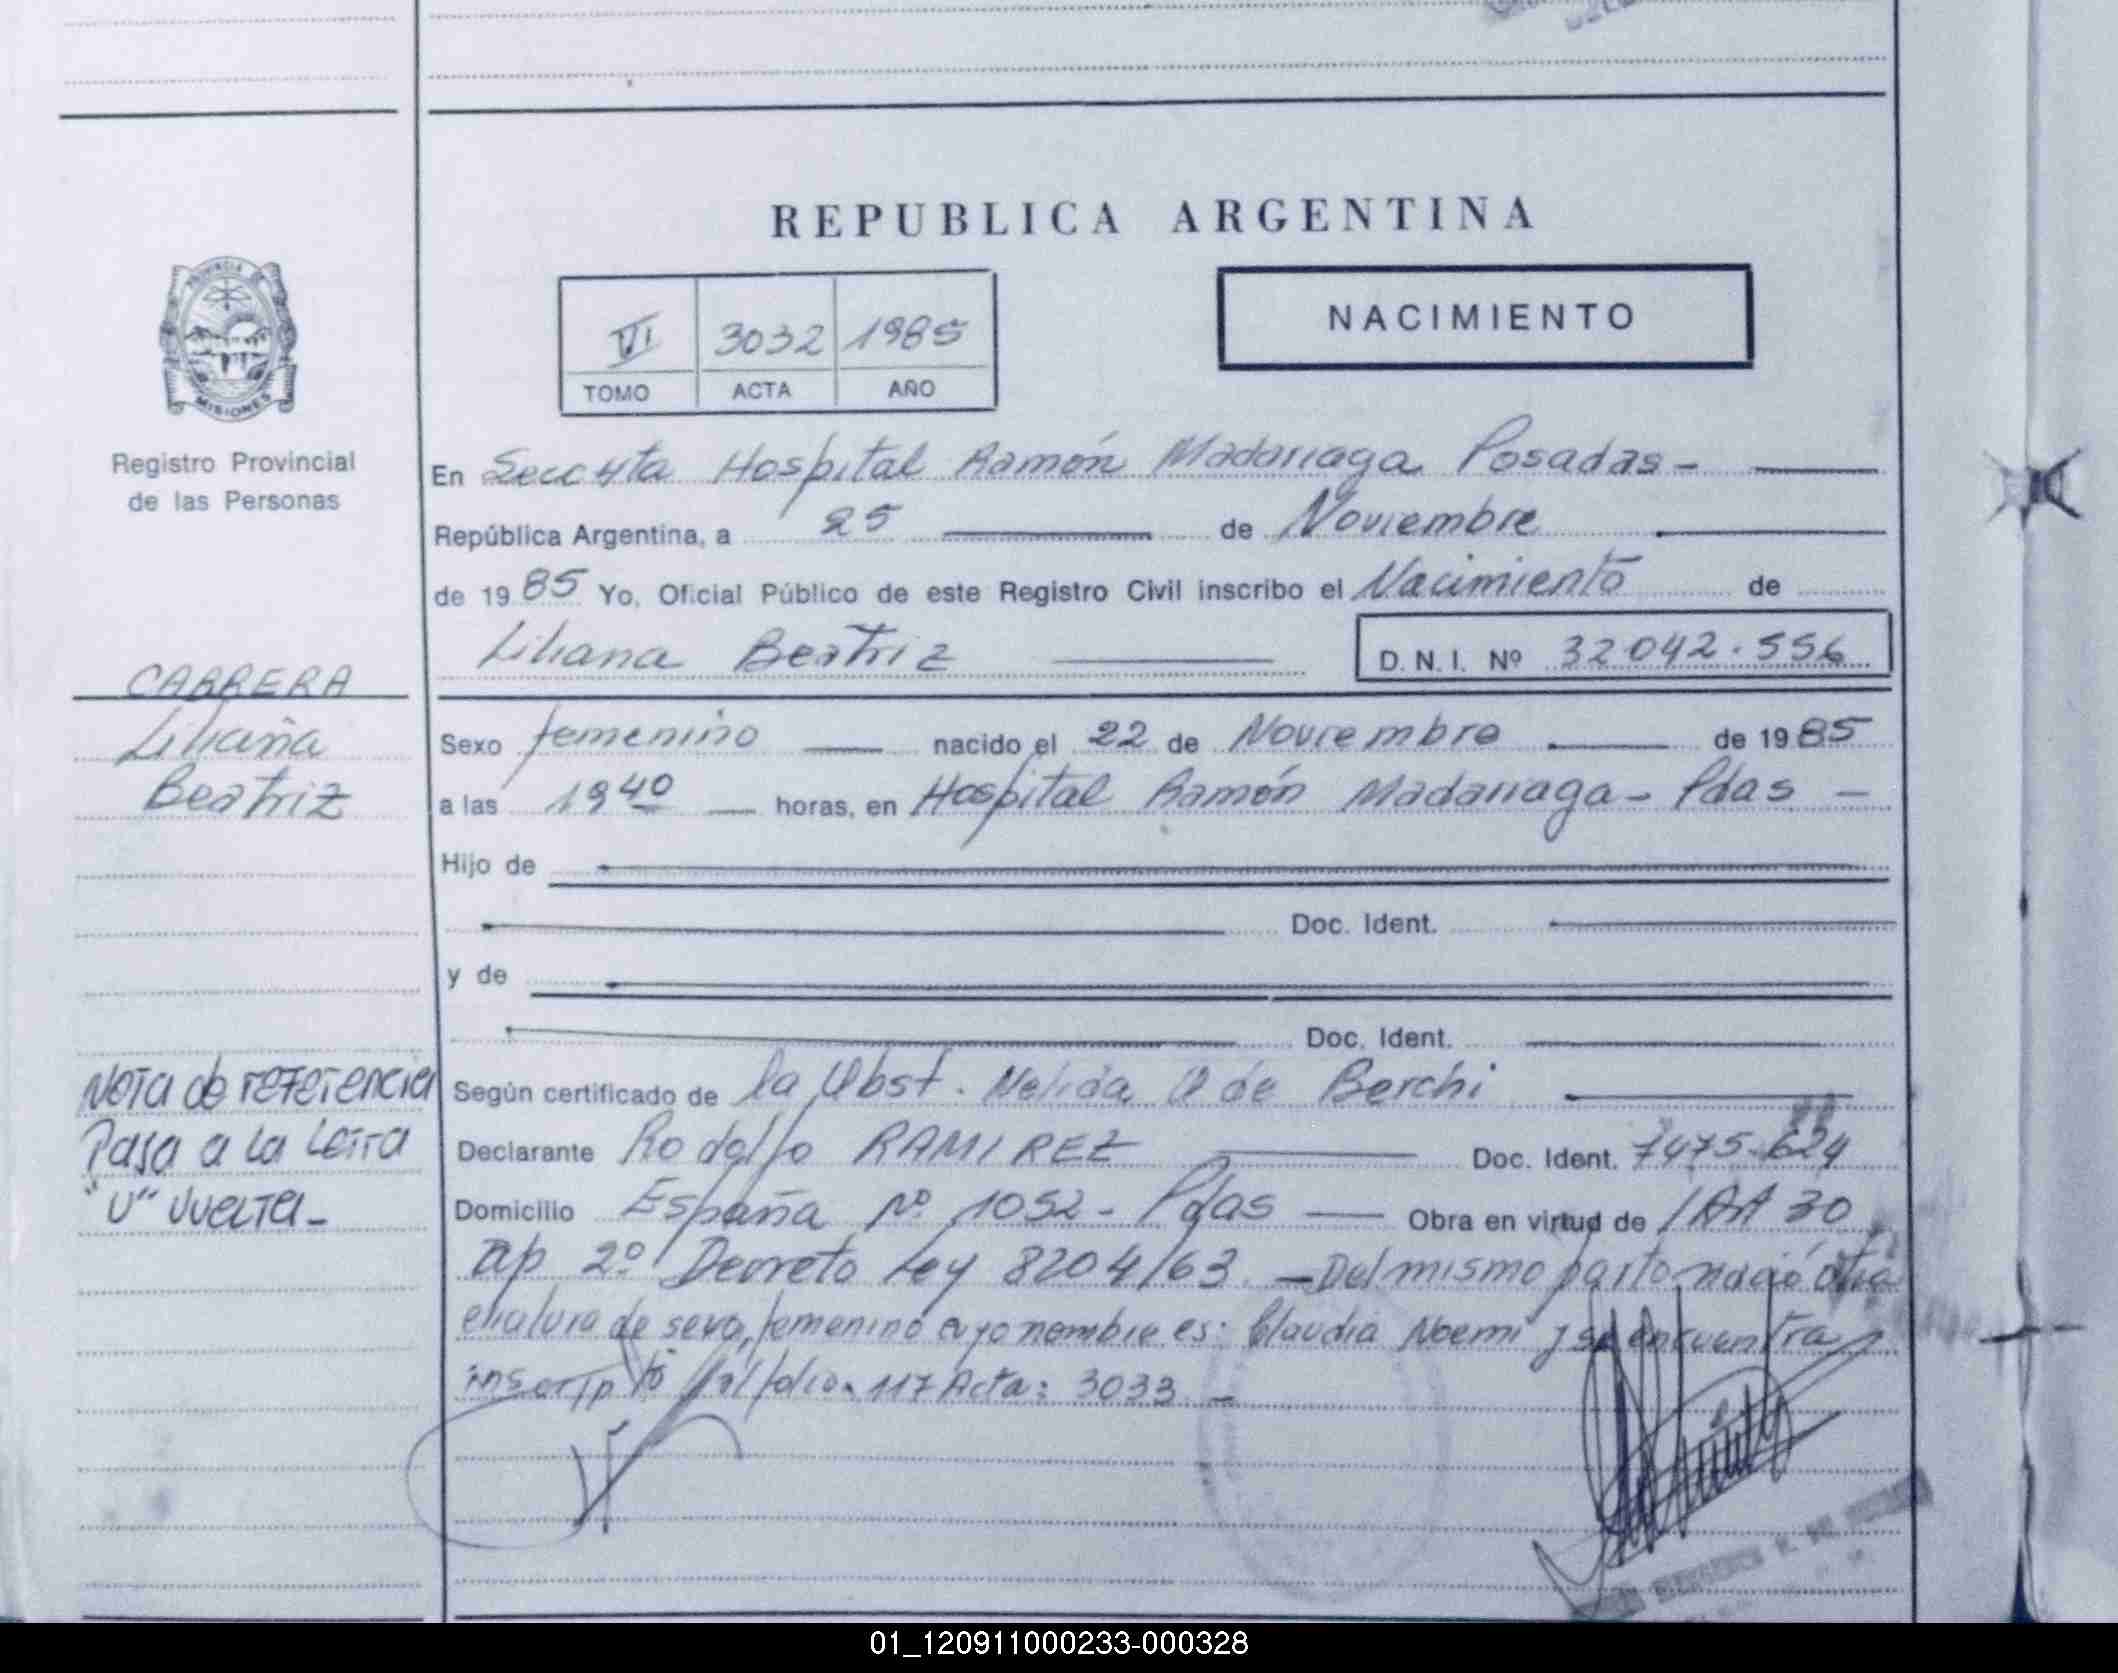 REPUBLICA ARGENTINA
VI 3032 1985
TOMO ACTA AÑO
NACIMIENTO
PROVINCIA DE
MISIONES
Registro Provincial
de las Personas
En Secc 4ta Hospital Ramón Madariaga Posadas -
República Argentina, a 25 de Noviembre
de 1985 Yo, Oficial Público de este Registro Civil inscribo el Nacimiento de
Liliana Beatriz D. N. I. Nº 32042.556
CABRERA
Liliana
Beatriz
Sexo femenino nacido el 22 de Noviembre de 1985
a las 19 40 horas, en Hospital Ramón Madariaga - Pdas -
Hijo de
Doc. Ident.
y de
Doc. Ident.
Nota de referencia
Pasa a la Letra
"U" Vuelta -
Según certificado de la Obst. Nelida de Berchi
Declarante Rodolfo RAMIREZ Doc. Ident. 7475.624
Domicilio España Nº 1052 - Pdas Obra en virtud de Art 30
ap 2º Decreto Ley 8204/63. - Del mismo parto nació otra
criatura de sexo, femenino cuyo nombre es: Claudia Noemi y se encuentra
inscripto al folio. 117 Acta: 3033 -
01_120911000233-000328